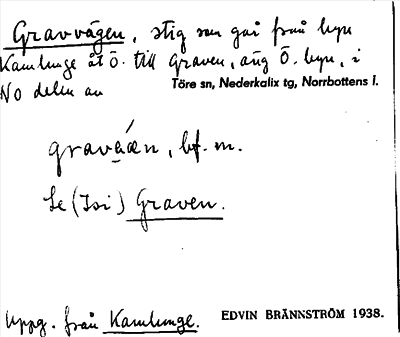 Gravvägen, stig som går från byn
Kamlunge åt Ö. till Graven, äng Ö. byn, i
NO delen av Töre sn, Nederkalix tg, Norrbottens l.
bf. m.
Se (Isi) Graven.
Uppg. från Kamlunge. EDVIN BRÄNNSTRÖM 1938.